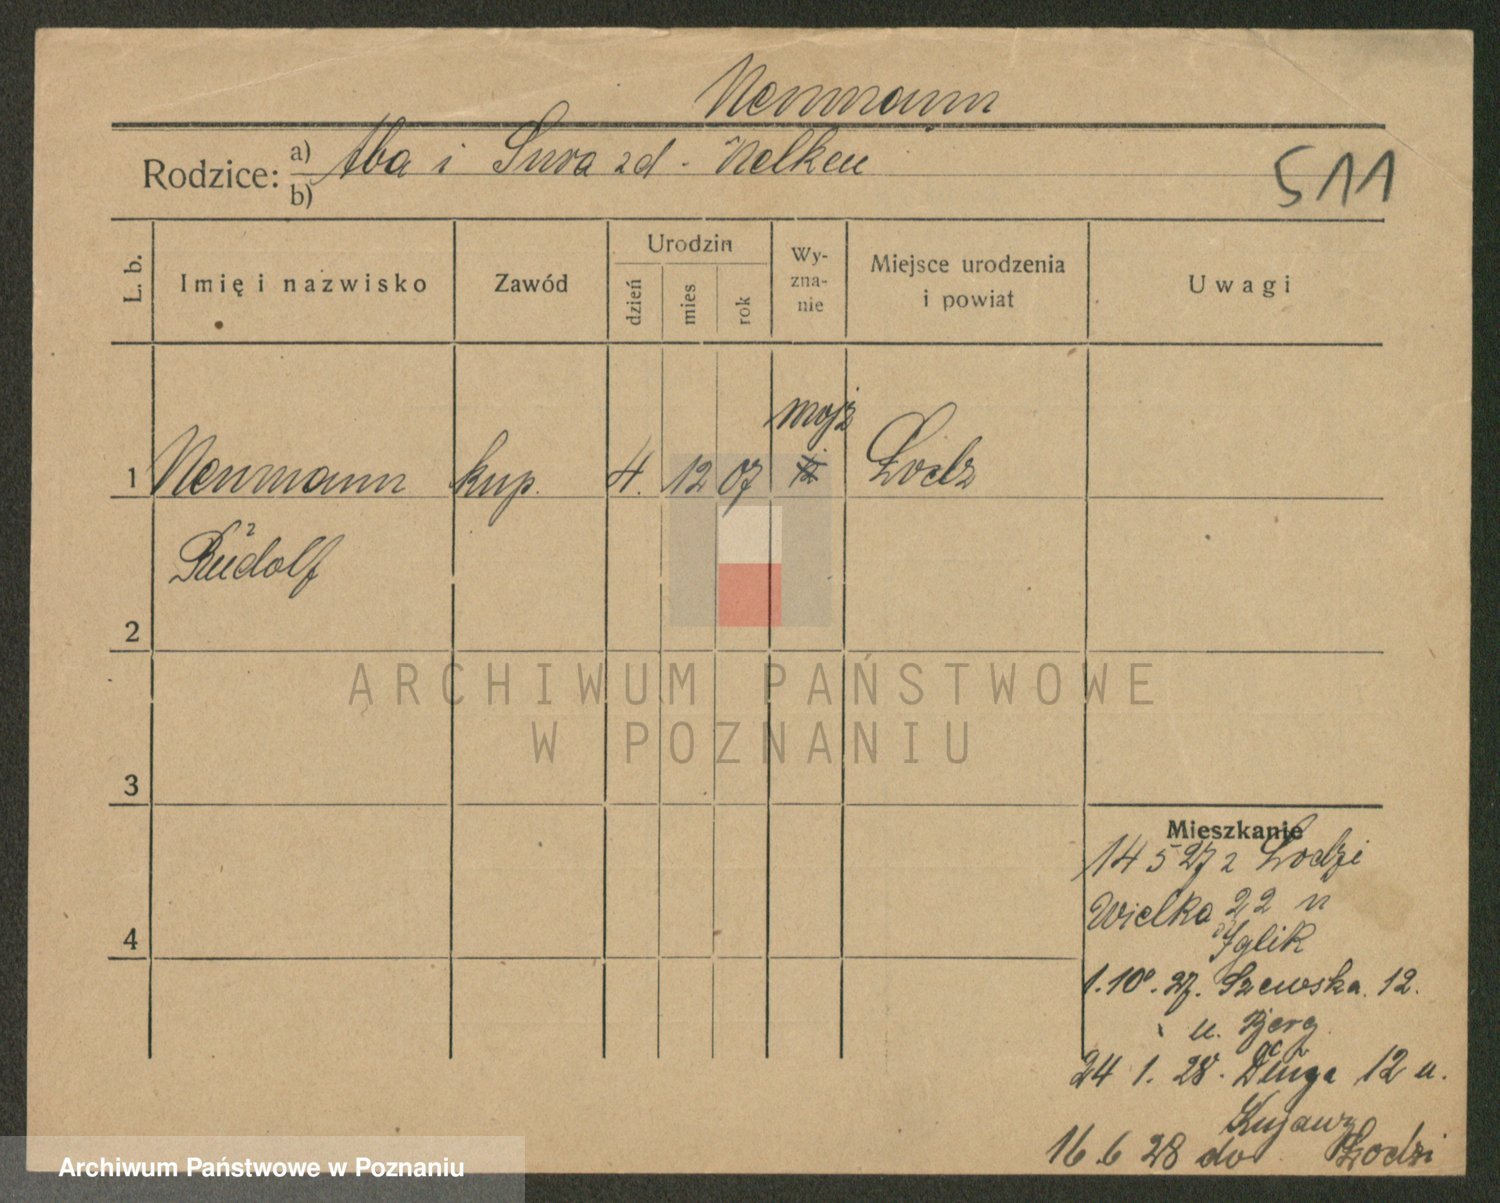 Neumann
Rodzice: a) Aba i Sura zd. Nelken
b)
511
L. b.
Imię i nazwisko
Zawód
Urodzin
dzień
mies
rok
Wy-
zna-
nie
Miejsce urodzenia
i powiat
Uwagi
mojż
1 Neumann kup. 4. 12 07 Łódz
Rudolf
2
3
4
Mieszkanie
14 5 27 z Łodzi
Wielka 22 u
Iglik
1.10.27. Szewska 12.
u. Berg
24 1. 28. Długa 12 u.
Kujawz
16.6 28 do Łodzi
ARCHIWUM PAŃSTWOWE
W POZNANIU
Archiwum Państwowe w Poznaniu